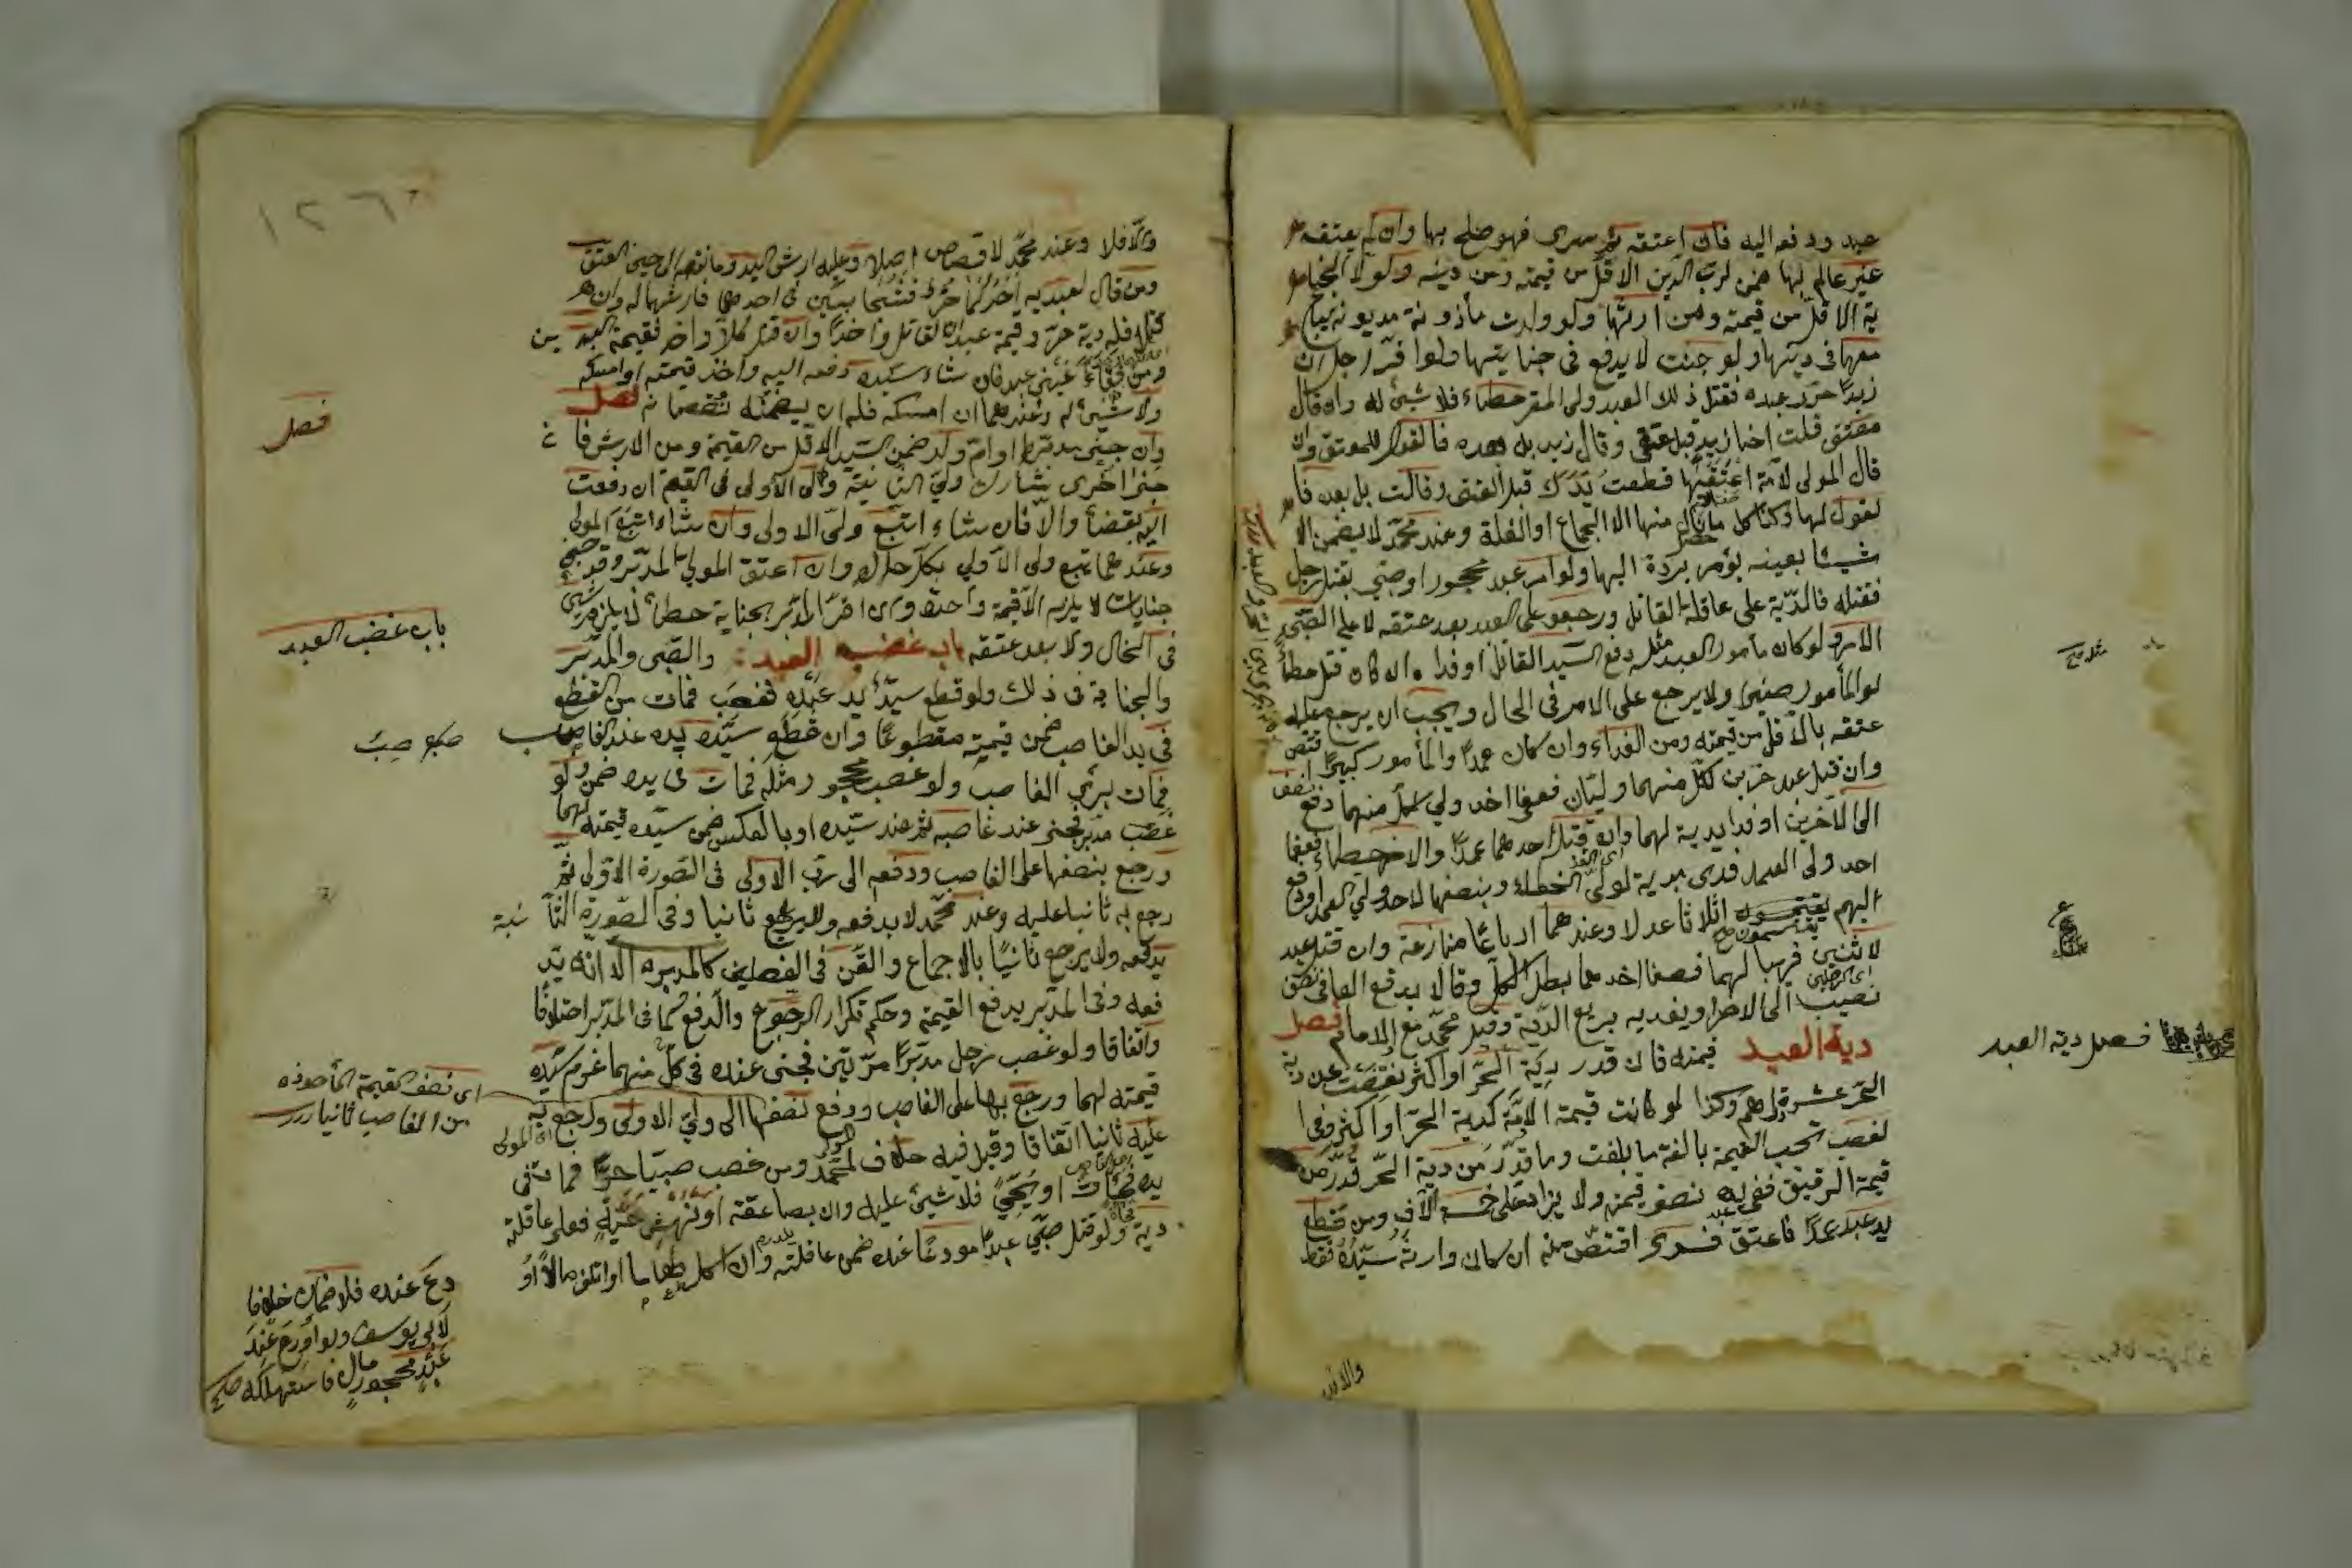 عبد ودفعه اليه فان اعتقه ثم سرى فهو صلح بها وان لم يعتقه
غير عالم بها ضمن لرب الدين الاقل من قيمته ومن دينه ولولى الجنا
ية الاقل من قيمته ومن ارشها ولو ولدت مأذونة مديونة يباع
معها في دينها ولو جنت لا يدفع في جنايتها ولو اقر رجل ان
زيدا حرر عبده فقتل ذلك العبد ولى المقر خطاء فلا شئ له وان قال
معتق قتلت اخا زيد قبل عتقى وقال زيد بل بعده فالقول للمعتق وان
قال المولى لأمة اعتقتها قطعت يدك قبل العتق وقالت بل بعده فا
لقول لها وكذا كل ما نال منها الا الجماع او الغلة وعند محمد لا يضمن الا
شيئا بعينه يؤمر برده اليها ولو امر عبد محجور او صبى بقتل رجل
فقتله فالدية على عاقلة القاتل ورجعوا على العبد بعد عتقه لا على الصبى
الامر ولو كان مأمور العبد مثله دفع السيد القاتل او فداه ان كان قتل خطأ
او المأمور صغيرا ولا يرجع على الامر في الحال ويجب ان يرجع عليه
عتقه بالاقل من قيمته ومن الفداء وان كان عمدا والمأمور كبيرا اقتص
وان قتل عبد حرين لكل منهما وليان فعفا احد ولي كل منهما دفع نصفه
الى الآخرين او فدا بدية لهما وان قتل احدهما عمدا والاخر خطاء فعفا
احد ولى العمد فدى بدية لولى الخطاء وبنصفها لاحد ولي العمد او دفع
اليهم يقتسمونه اثلاثا عولا وعندهما ارباعا منازعة وان قتل عبد
لاثنين قريبا لهما فعفا احدهما بطل الكل وقالا يدفع العافى نصف
نصيبه الى الاخر او يفديه بربع الدية وقيل محمد مع الامام فصل
دية العبد قيمته فان كانت قدر دية الحر او اكثر نقصت عن دية
الحر عشرة دراهم وكذا لو كانت قيمة الامة كدية الحرة او اكثر وفى ا
لغصب تجب القيمة بالغة ما بلغت وما قدر من دية الحر قدر من
قيمة الرقيق ففى يده نصف قيمته ولا يزاد على خمسة الآف ومن قطع
يد عبد عمدا فاعتق فسرى اقتص منه ان كان وارثه سيده فقط
فصل دية العبد
والا
والا فلا وعند محمد لا قصاص اصلا وعليه ارش اليد وما نقصه الى حين العتق
ومن قال لعبديه احدكما حر فشجا فبين في احدهما فارشهما له وان
قتلا فله دية حر وقيمة عبد ان القاتل واحدا وان قتل كلا واحد فقيمة العبدين
ومن فقاء عينى عبد فان شاء سيده دفعه اليه واخذ قيمته او امسكه
ولا شئ له وعندهما ان امسكه فله ان يضمنه نقصانه فصل
وان جنى مدبر او ام ولد ضمن السيد الاقل من القيمة ومن الارش فان
جنى اخرى يشارك ولي الثانية ولى الأولى في القيمة ان دفعت
اليه بقضأ والا فان شاء اتبع ولى الاولى وان شاء اتبع المولى
وعندهما يتبع ولى الأولى بكل حال وان اعتق المولى المدبر وقد جنى
جنايات لا يلزمه الا قيمة واحدة وان اقر المدبر بجناية خطأ لا يلزمه شئ
فى الحال ولا بعد عتقه باب غصب العبد والصبى والمدبر
والجناية فى ذلك ولو قطع سيد يد عبده فغصب فمات من القطع
في يد الغاصب ضمن قيمته مقطوعا وان قطع سيده يده عند الغاصب
فمات برئ الغاصب ولو غصب محجور مثله فمات فى يده ضمن ولو
غصب مدبر فجنى عند غاصبه ثم عند سيده او بالعكس ضمن سيده قيمته لهما
ورجع بنصفها على الغاصب ودفعه الى رب الاولى فى الصورة الاولى ثم
رجع به ثانيا عليه وعند محمد لا يدفعه ولا يرجع ثانيا وفى الصورة الثانية
يدفعه ولا يرجع ثانيا بالاجماع والقن فى الفصلين كالمدبر الا انه يد
فعه وفى المدبر يدفع القيمة وحكم تكرار الرجوع والدفع كما فى المدبر اختلافا
واتفاقا ولو غصب رجل مدبرا مرتين فجنى عنده فى كل منهما غرم سيده
قيمته لهما ورجع بها على الغاصب ودفع نصفها الى ولي الاولى ورجع به
عليه ثانيا اتفاقا وقيل فيه خلاف لمحمد ومن غصب صبيا حرا فمات فى
يده فجأت او بحمى فلا شئ عليه وان بصاعقة او نهش حية فعلى عاقلته
دية ولو قتل صبى عبدا مودعا عنده ضمن عاقلته وان اكل طعاما او اتلف مالا او
فصل
باب غصب العبد
اى نصف القيمة المأخوذة
من الغاصب ثانيا درر
دع عنده فلا ضمان خلافا
لأبى يوسف ولو اودع عند
عبد محجور مال فاستهلكه صح